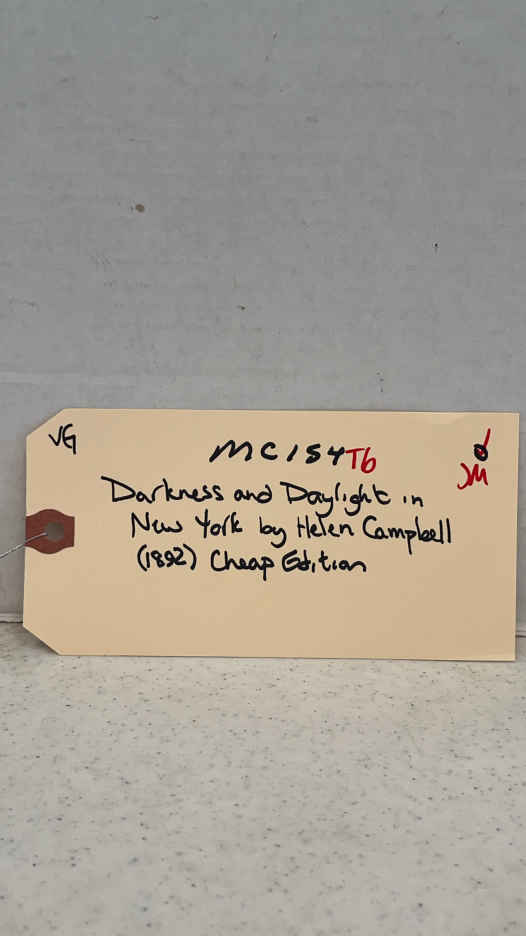 VG
MC154T6
JM
Darkness and Daylight in
New York by Helen Campbell
(1892) Cheap Edition